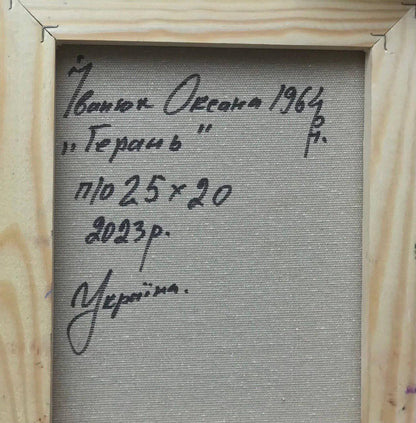 Іванюк Оксана 1964 р.н.
„Герань"
п/о 25 х 20
2023 р.
Україна.